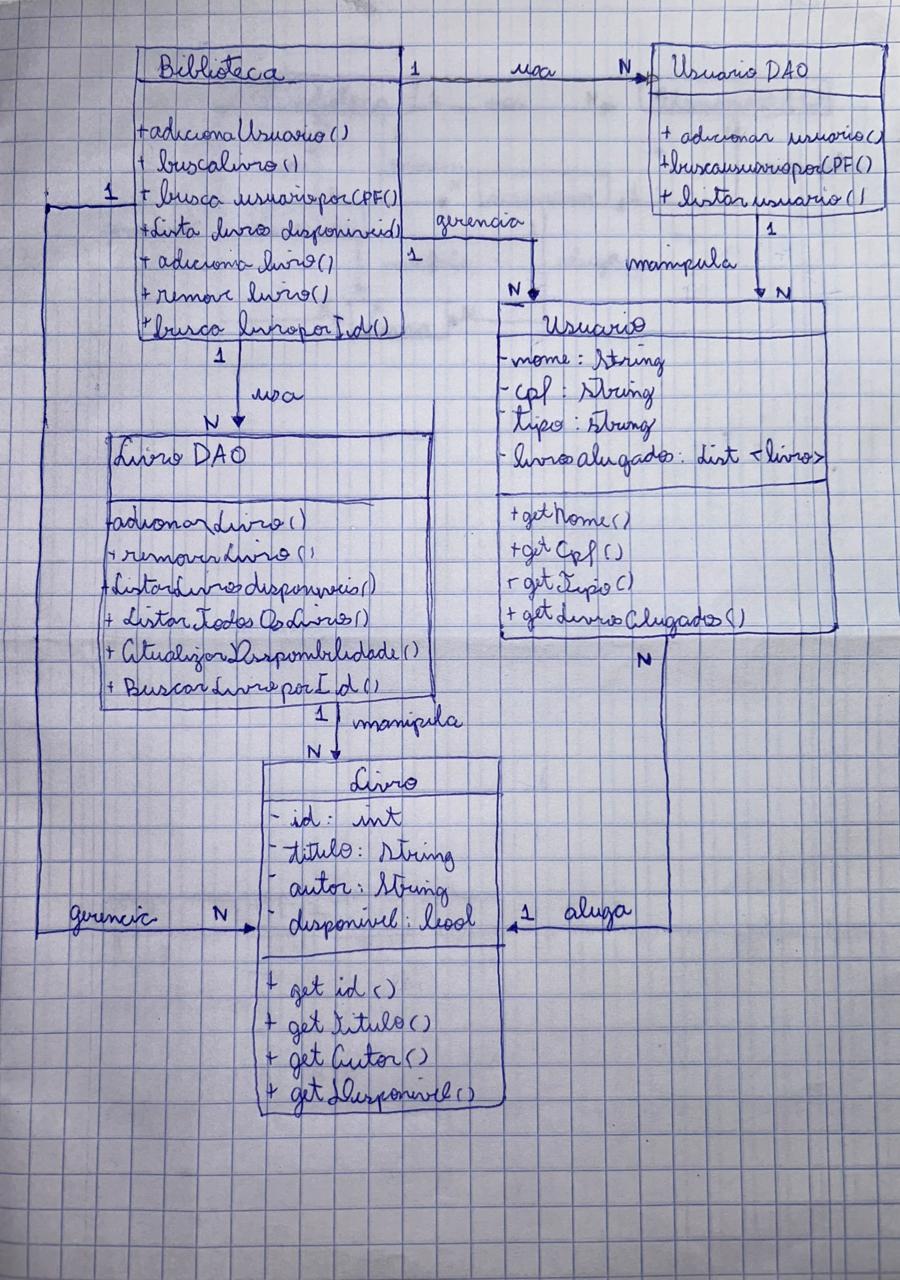 Biblioteca
+adicionaUsuario()
+ buscalivro()
+ busca usuarioporCPF()
+Lista livros disponiveis)
+ adiciona livro()
+ remove livro()
+ busca livroporId()
1 usa N
Usuario DAO
+ adicionar usuario()
+buscausuarioporCPF()
+ listar usuario()
1
1
gerencia
1
N
manipula
N
Usuario
- nome: String
- cpf: String
- tipo: String
- livrosalugados: List <livro>
+getNome()
+getCpf()
+getTipo()
+getLivrosAlugados()
1
usa
N
Livro DAO
+adicionarLivro()
+removerLivro()
+ListarLivrosdisponiveis()
+ ListarTodosOsLivros()
+ AtualizarDisponibilidade()
+ BuscarLivroporId()
1 manipula
N
Livro
- id: int
- titulo: String
- autor: String
- disponivel: bool
+ get id()
+ getTitulo()
+ getAutor()
+ getDisponivel()
gerencia N
N
1 aluga